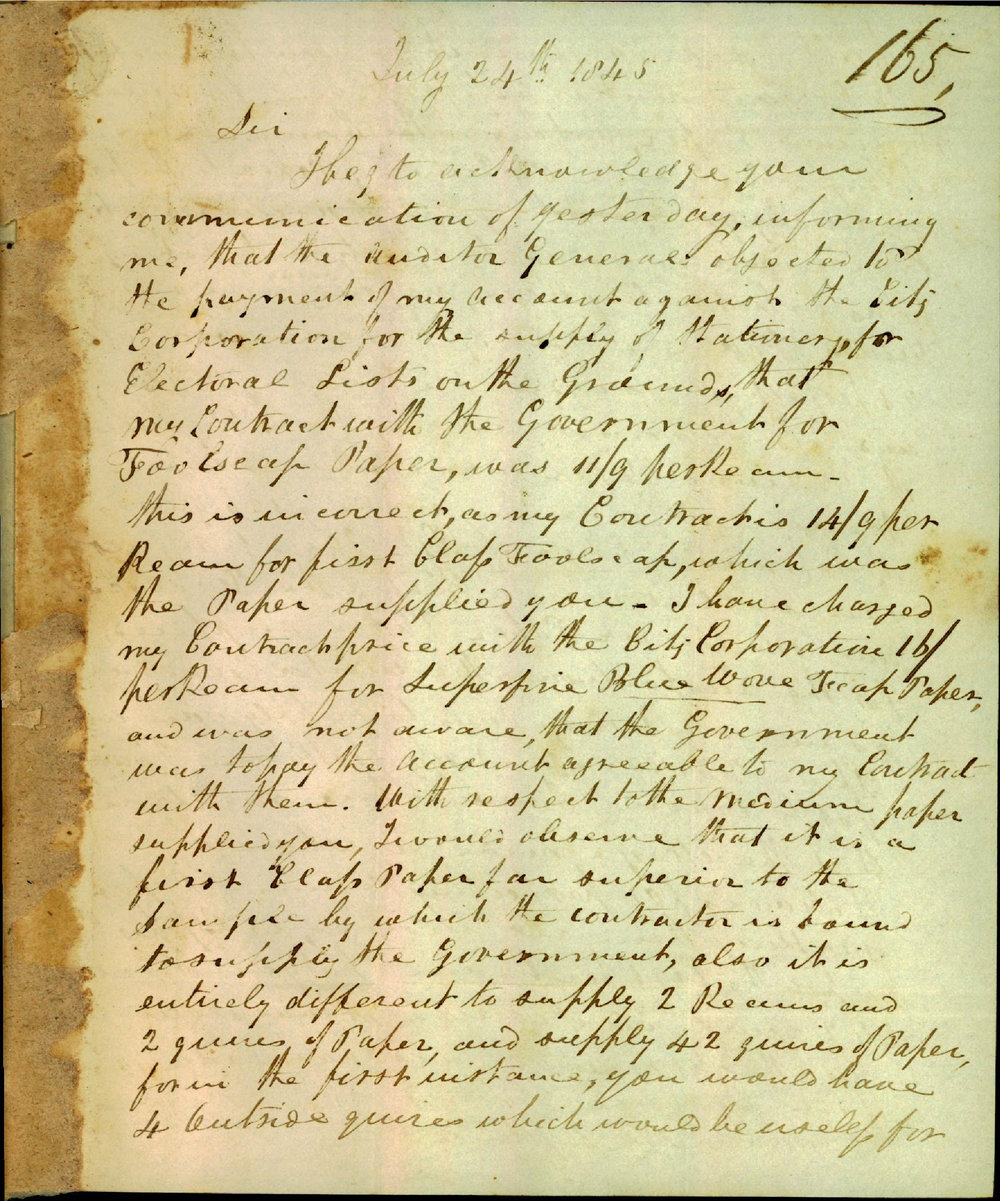 165,
July 24th 1845
Sir
I beg to acknowledge your
communication of yesterday, informing
me, that the Auditor General objected to
the payment of my account against the City
Corporation for the supply of Stationery, for
Electoral Lists on the Grounds, that
my Contract with the Government for
Foolscap Paper, was 11/9 per Ream -
this is incorrect, as my Contract is 14/9 per
Ream for first Class Foolscap, which was
the Paper supplied you - I have charged
my Contract price with the City Corporation 16/
per Ream for Superfine Blue Wove Fcap Paper,
and was not aware, that the Government
was to pay the Account agreeable to my Contract
with them. With respect to the Medium paper
supplied you, I would observe that it is a
first Class Paper far superior to the
Sample by which the contractor is bound
to supply the Government, also it is
entirely different to supply 2 Reams and
2 quires of Paper, and supply 42 quires of Paper,
for in the first instance, you would have
4 Outside quires which would be useless for